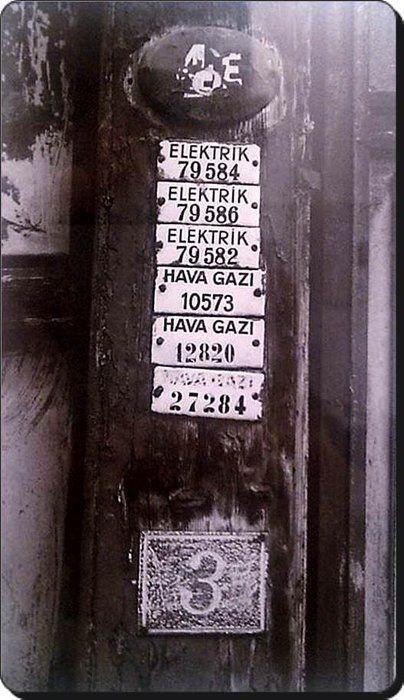 ELEKTRİK
79584
ELEKTRİK
79586
ELEKTRİK
79582
HAVA GAZI
10573
HAVA GAZI
12820
HAVA GAZI
27284
3